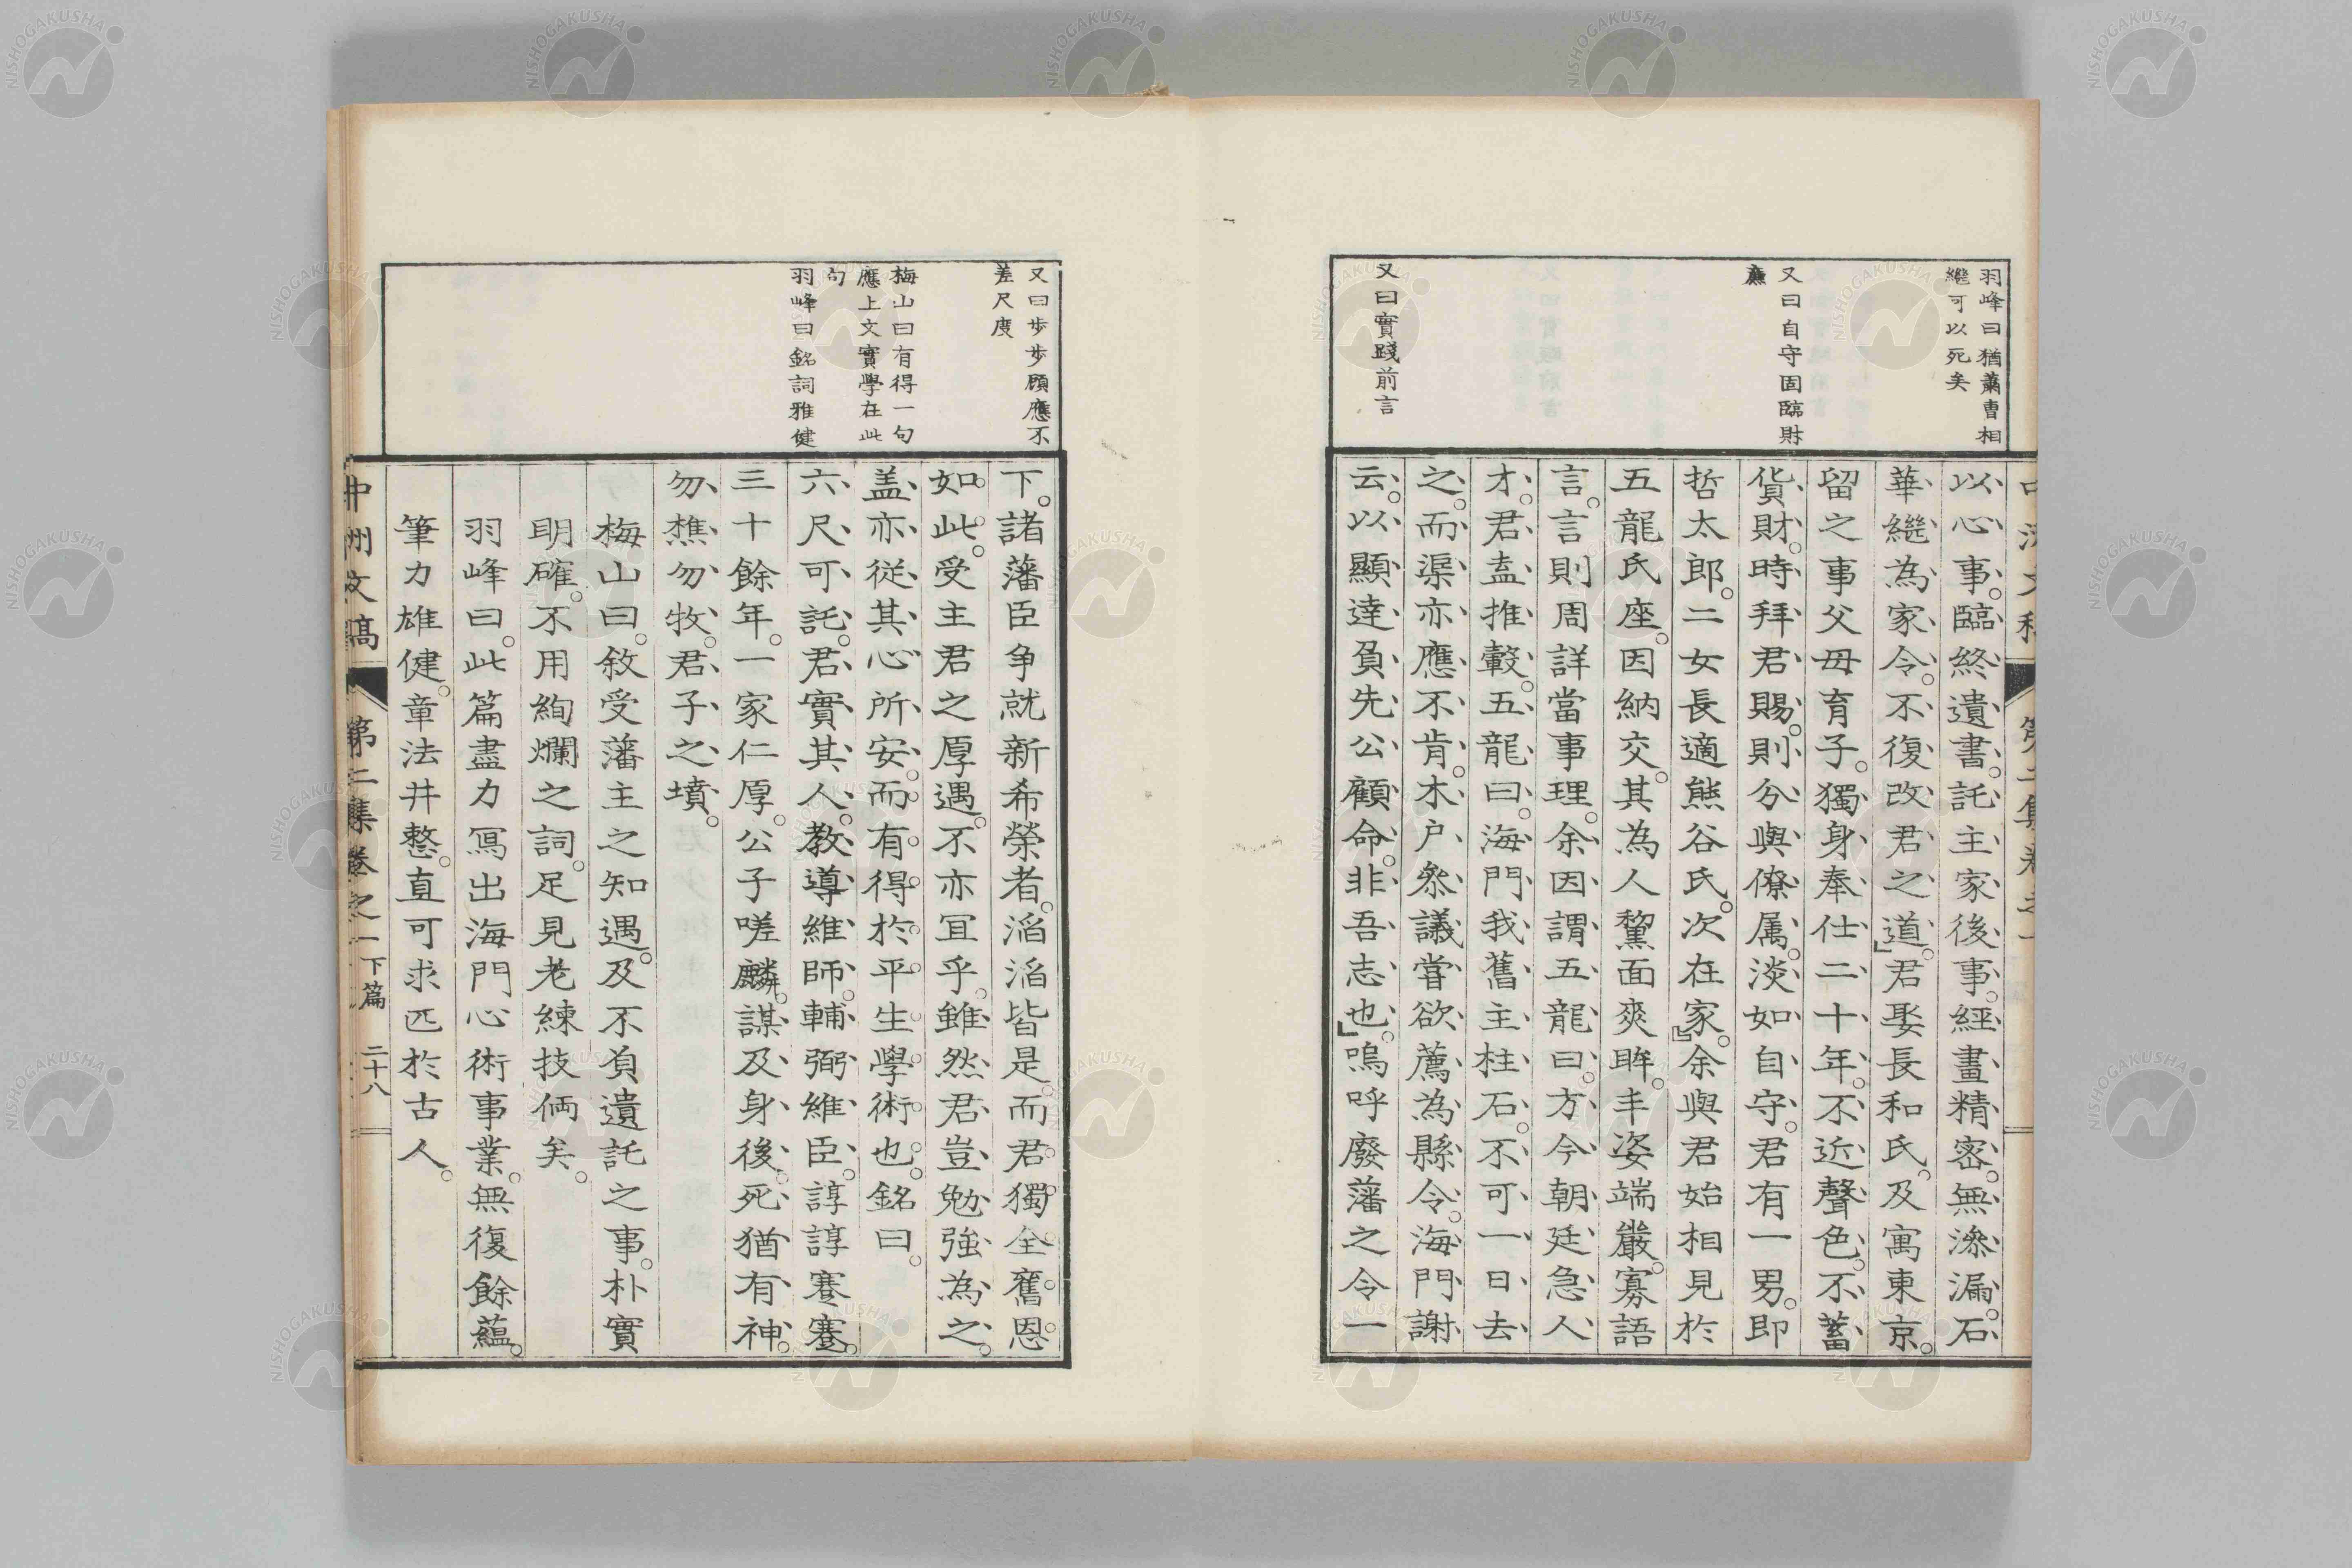 羽峰曰猶蕭曹相
繼可以死矣
又曰自守固臨財
廉
又曰實踐前言
以心事。臨終遺書。託主家後事。經畫精密。無滲漏。石
華繼為家令。不復改君之道。」君娶長和氏。及寓東京。
留之事父母育子。獨身奉仕二十年。不近聲色。不蓄
貨財。時拜君賜。則分與僚属。淡如自守。君有一男。即
哲太郎。二女長適熊谷氏。次在家。」余與君始相見於
五龍氏座。因納交。其為人黧面爽眸。丰姿端嚴。寡語
言。言則周詳當事理。余因謂五龍曰。方今朝廷急人
才。君盍推轂。五龍曰。海門我舊主柱石。不可一日去
之。而渠亦應不肯。木戶叅議嘗欲薦為縣令。海門謝
云。以顯達負先公顧命。非吾志也。」嗚呼廢藩之令一
又曰步步顧應不
差尺度
梅山曰有得一句
應上文實學在此
句
羽峰曰銘詞雅健
下。諸藩臣争就新希榮者。滔滔皆是。而君獨全舊恩
如此。受主君之厚遇。不亦宜乎。雖然君豈勉強為之。
盖亦從其心所安。而有得於平生學術也。銘曰。
六尺可託。君實其人。教導維師。輔弼維臣。諄諄蹇蹇。
三十餘年。一家仁厚。公子嗟麟。謀及身後。死猶有神。
勿樵勿牧。君子之墳。
梅山曰。敘受藩主之知遇。及不負遺託之事。朴實
明確。不用絢爛之詞。足見老練技倆矣。
羽峰曰。此篇盡力寫出海門心術事業。無復餘蘊。
筆力雄健。章法井整。直可求匹於古人。
中洲文稿 第二集卷之一下篇 二十八